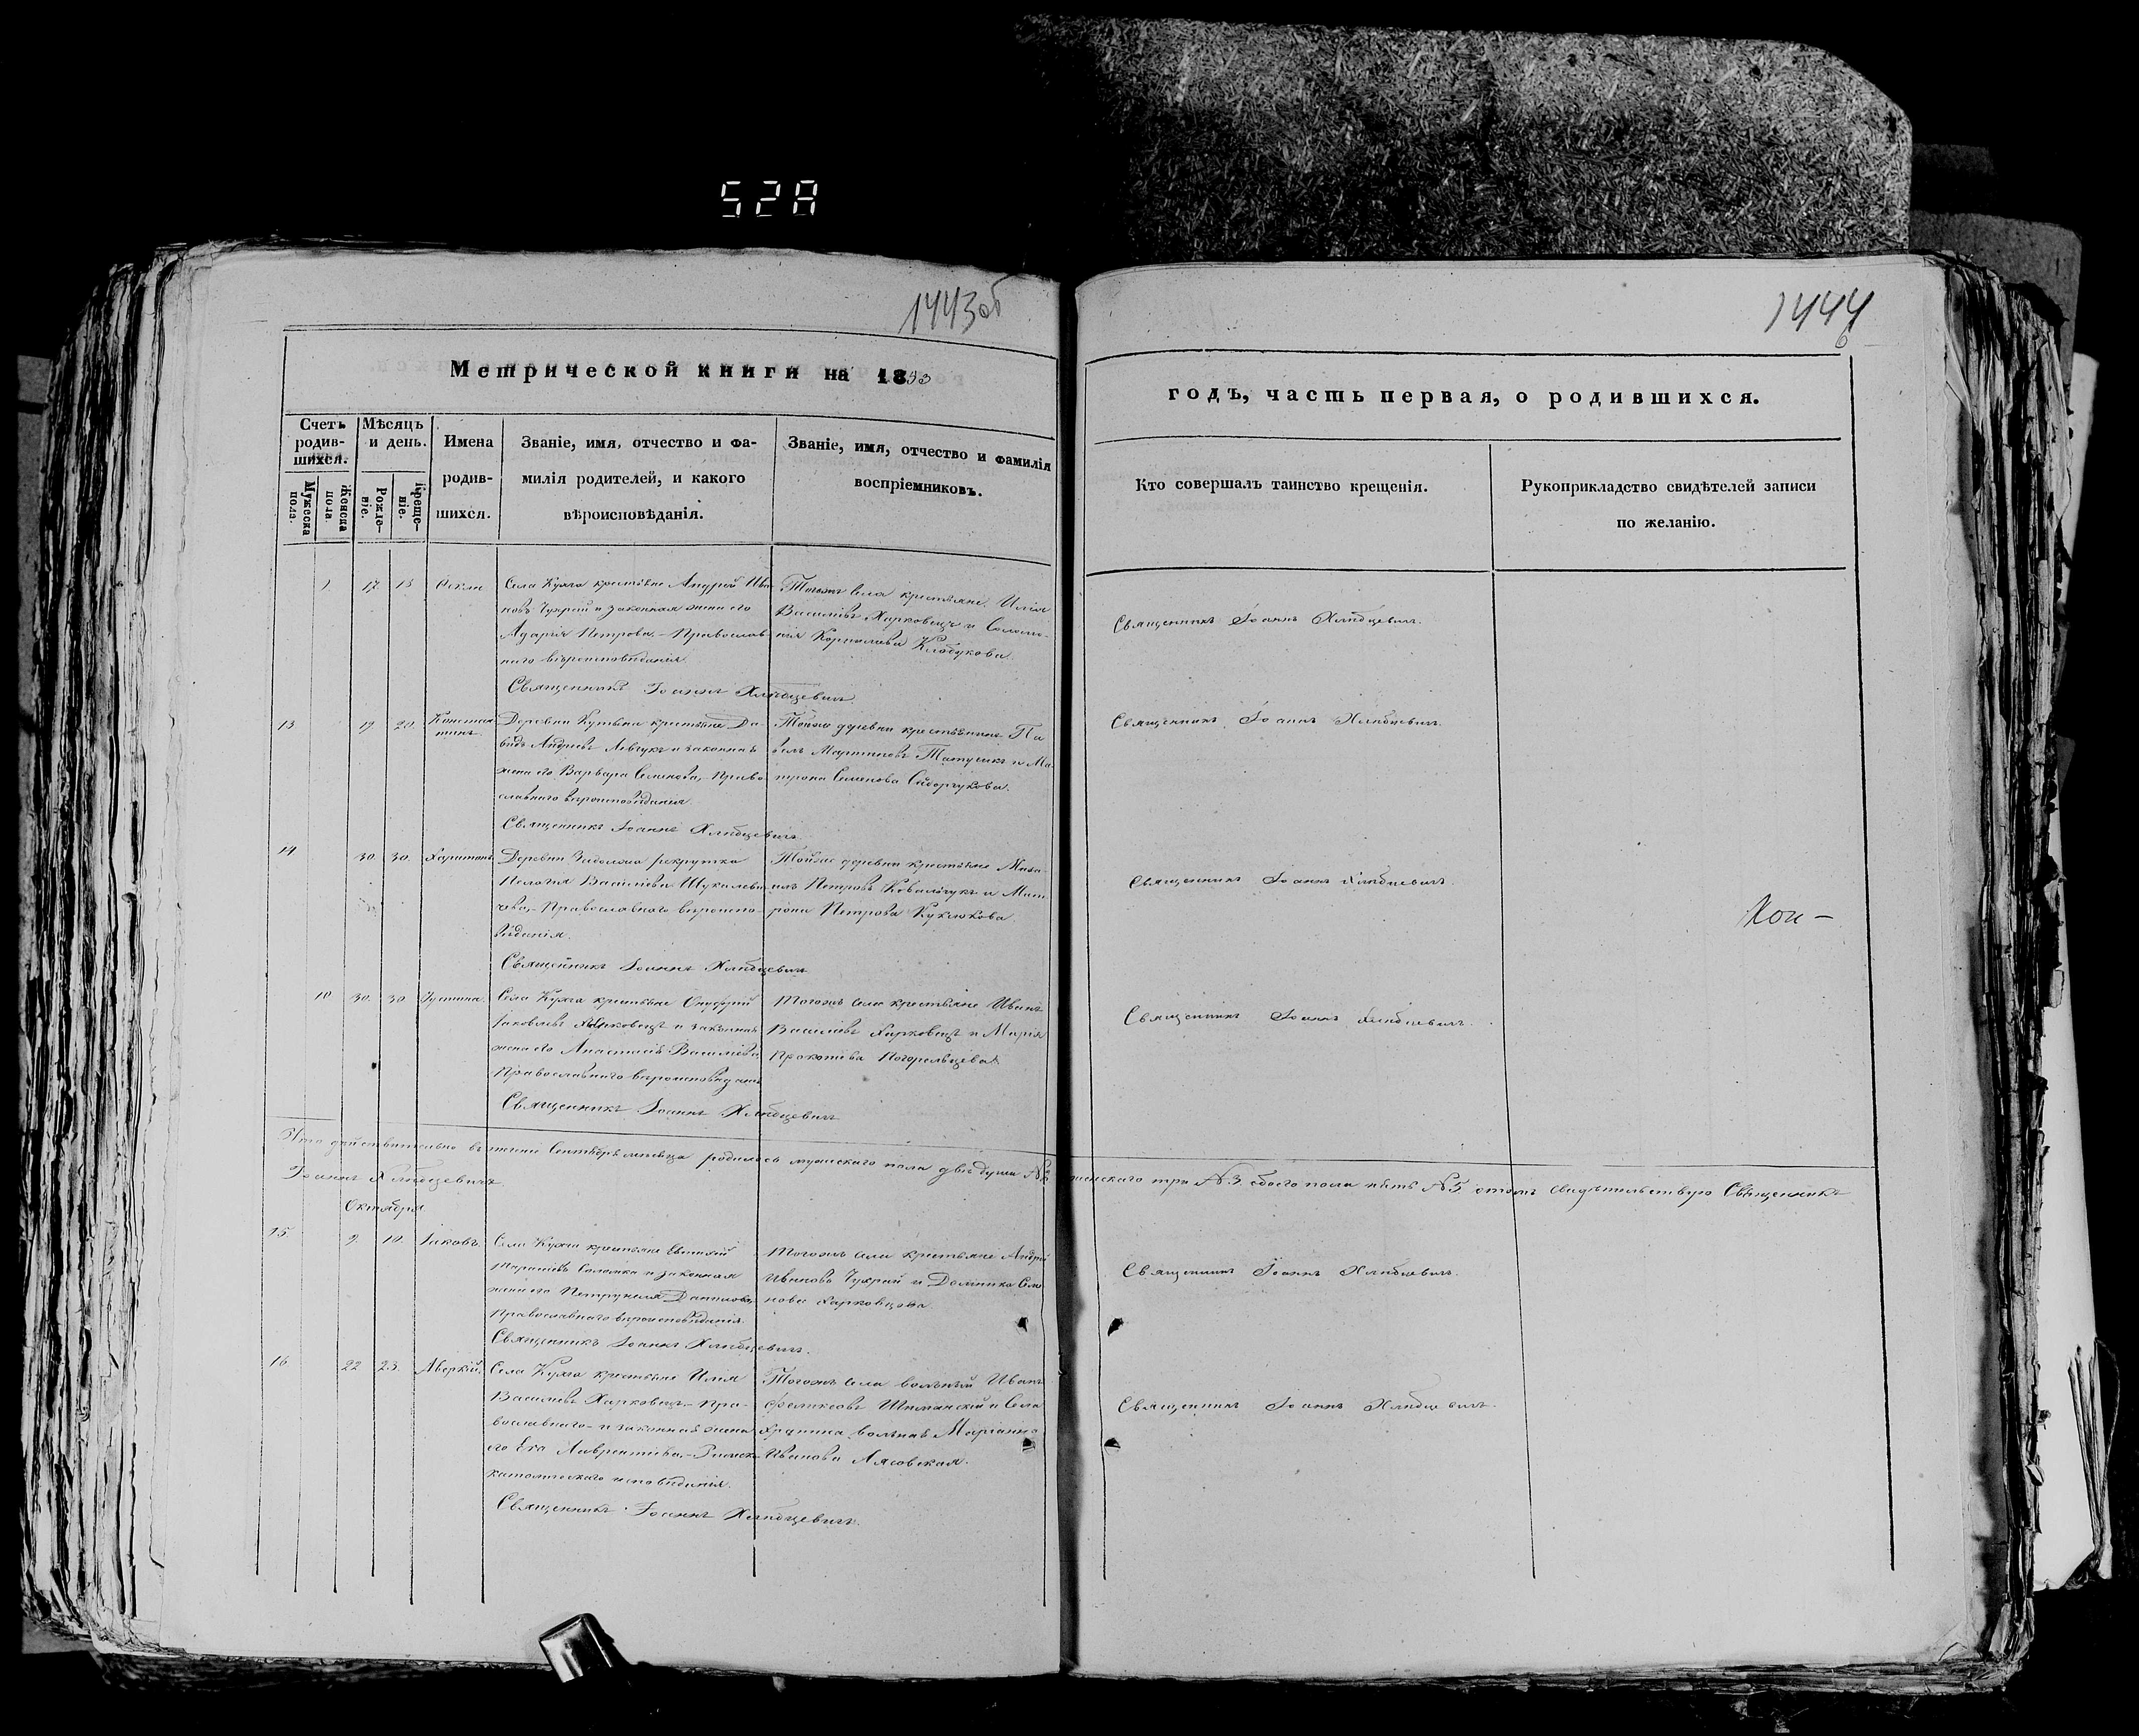 52A
1443об
1444
Метрической книги на 1853
годъ, часть первая, о родившихся.
Счетъ родив-шихся.
Мужеска пола.
Женска пола.
Мѣсяцъ и день.
Рожде-ніе.
Креще-ніе.
Имена
родив-
шихся.
Званіе, имя, отчество и фа-
милія родителей, и какого
вѣроисповѣданія.
Званіе, имя, отчество и фамилія
воспріемниковъ.
Кто совершалъ таинство крещенія.
Рукоприкладство свидѣтелей записи
по желанію.
17 18 Ѳекла
Села Кужа крестьяне Андрей Ива-
новъ Чухрай и законная жена его
Петрова, Православ-
наго вѣроисповѣданія.
Священникъ Іоаннъ Хлѣбцевичъ
Тогожъ села крестьяне Илія
Васильевъ Харковецъ и Соломо-
нія Корнилова
Священникъ Іоаннъ Хлѣбцевичъ.
13 19 20 Констан-
тинъ.
Деревни крестьяне Да-
видъ Андреевъ Левчукъ и законная
жена его Варвара Семенова, Право-
славнаго вѣроисповѣданія.
Священникъ Іоаннъ Хлѣбцевичъ
Тойже деревни крестьянинъ Па-
велъ Мартиновъ и Ма-
трона Семенова Сидорчукова.
Священникъ Іоаннъ Хлѣбцевичъ.
14 30 30 Харитонъ
Деревни рекрутка
Пелагія Васильева
Православнаго вѣроиспо-
вѣданія.
Священникъ Іоаннъ Хлѣбцевичъ
Тойже деревни крестьяне Миха-
илъ Петровъ Ковальчукъ и Мат-
рона Петрова Куклюкова.
Священникъ Іоаннъ Хлѣбцевичъ.
Кон–
10 30 30 Іустина
Села Кужа крестьяне Онуфрій
Іаковлевъ Харковецъ и законная
жена его Анастасія Васильева,
Православнаго вѣроисповѣданія
Священникъ Іоаннъ Хлѣбцевичъ
Тогожъ села крестьяне Иванъ
Васильевъ Харковецъ и Марія
Прокопіева Погорельцева.
Священникъ Іоаннъ Хлѣбцевичъ.
Что дѣйствительно въ теченіи Сентября мѣсяца родилось мужскаго пола двѣ души №2 женскаго три №3. обоего пола пять №5. о томъ свидѣтельствую Священникъ
Іоаннъ Хлѣбцевичъ.
Октября
15 9 10 Іаковъ
Села Кужа крестьяне Евтихій
Соломка и законная
жена его Петрунеля Данилова,
Православнаго вѣроисповѣданія.
Священникъ Іоаннъ Хлѣбцевичъ.
Тогожъ села крестьяне Андрей
Ивановъ Чухрай и Домника Семе-
нова Харковцова
Священникъ Іоаннъ Хлѣбцевичъ.
16 22 23 Аверкій
Села Кужа крестьяне Илія
Васильевъ Харковецъ, Пра-
вославнаго и законная жена
его Ева Лаврентіева, Римско-
католическаго исповѣданія.
Священникъ Іоаннъ Хлѣбцевичъ.
Тогожъ села вольный Иванъ
Феликсовъ Шиманскій и Села
вольная Маріанна
Иванова Лясовская.
Священникъ Іоаннъ Хлѣбцевичъ.